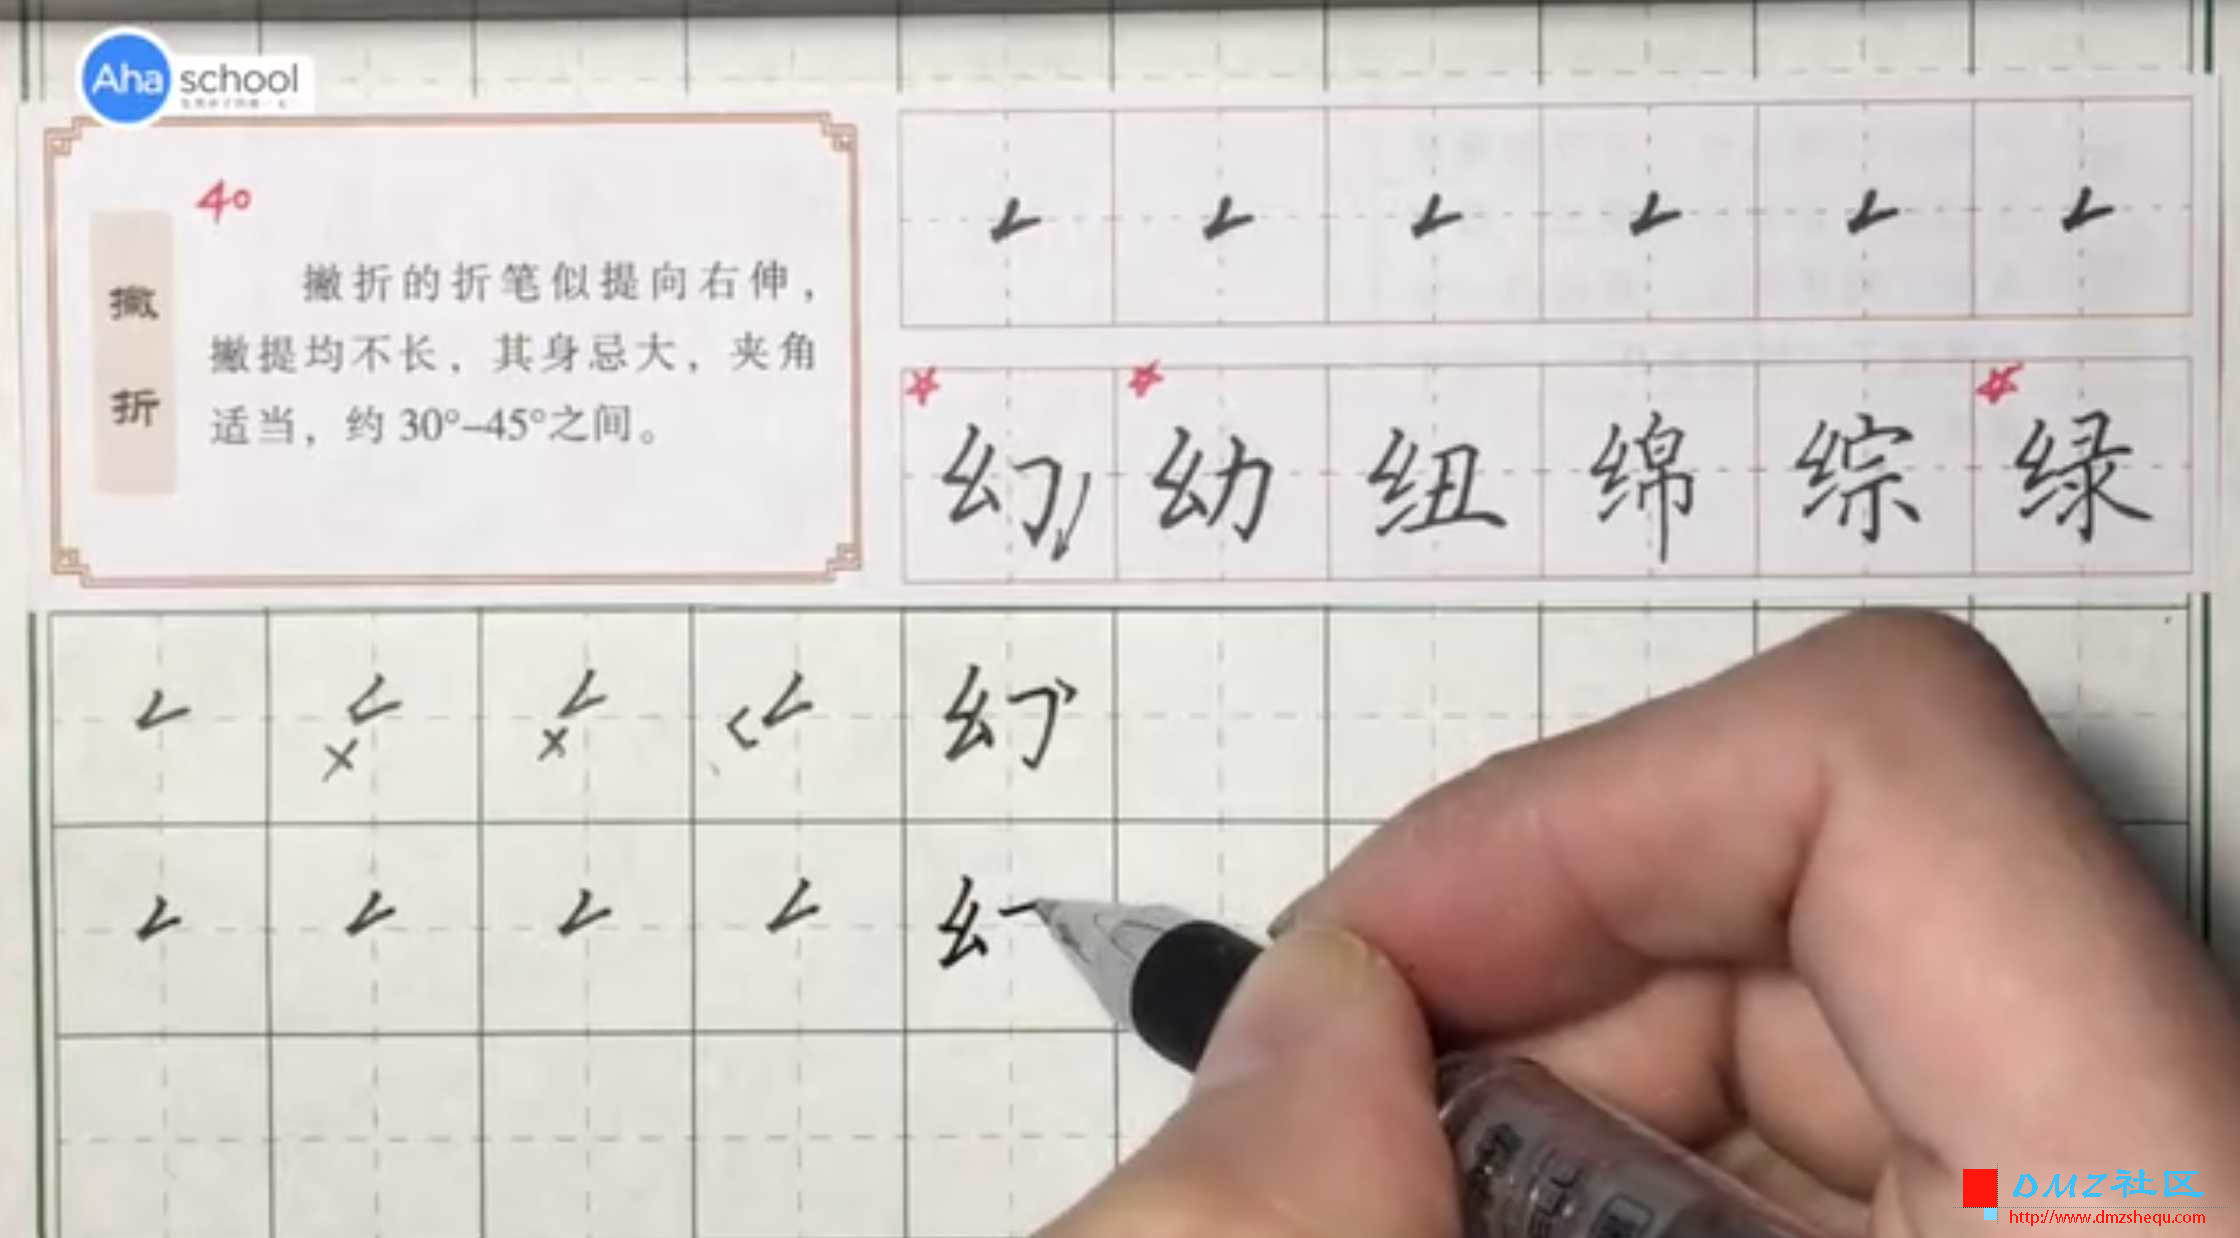 Aha school
40
撇折
撇折的折笔似提向右伸，
撇提均不长，其身忌大，夹角
适当，约 30°–45°之间。
幻 幼 纽 绵 综 绿
幻
DMZ社区
http://www.dmzshequ.com